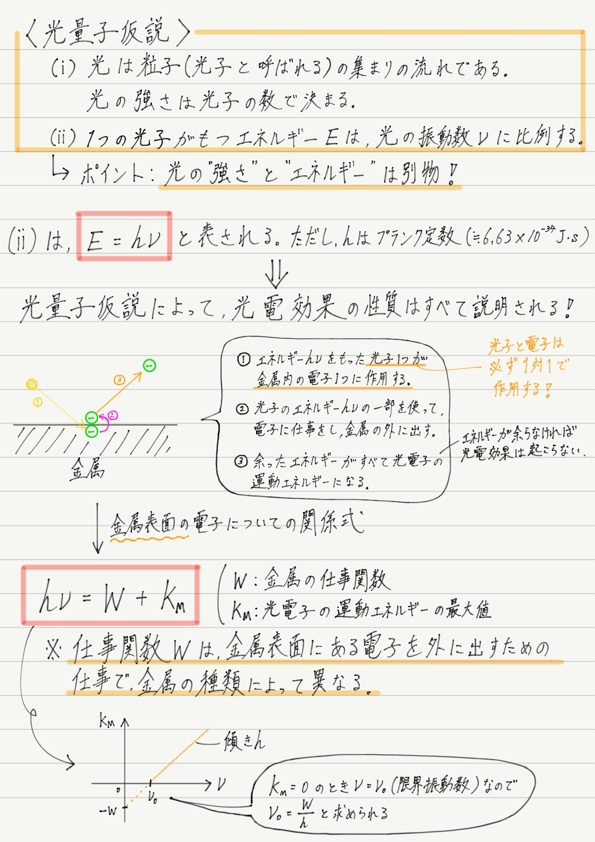 〈光量子仮説〉
(i) 光は粒子(光子と呼ばれる)の集まりの流れである。
光の強さは光子の数で決まる。
(ii) 1つの光子がもつエネルギーEは,光の振動数νに比例する。
↳ ポイント:光の"強さ"と"エネルギー"は別物!
(ii)は, E=hν と表される。ただし,hはプランク定数(≒6,63×10⁻³⁴J·s)
⇓
光量子仮説によって,光電効果の性質はすべて説明される!
① エネルギーhνをもった光子1つが
金属内の電子1つに作用する。
光子と電子は
必ず1対1で
作用する!
② 光子のエネルギーhνの一部を使って,
電子に仕事をし,金属の外に出す。
③ 余ったエネルギーがすべて光電子の
運動エネルギーになる。
エネルギーが余らなければ
光電効果は起こらない.
①
②
③
金属
金属表面の電子についての関係式
hν=W+K_M
W:金属の仕事関数
K_M:光電子の運動エネルギーの最大値
※ 仕事関数Wは,金属表面にある電子を外に出すための
仕事で,金属の種類によって異なる。
K_M
傾きh
0
ν₀
ν
-W
K_M=0のときν=ν₀(限界振動数)なので
ν₀=W/h と求められる